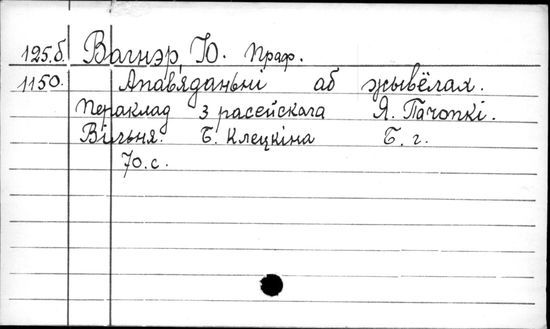 125.б Вагнэр, Ю. Праф.
1150. Апавяданьні аб жывёлах.
Пераклад з расейскага Я. Пачопкі.
Вільня. Б. Клецкіна Б. г.
70.с.